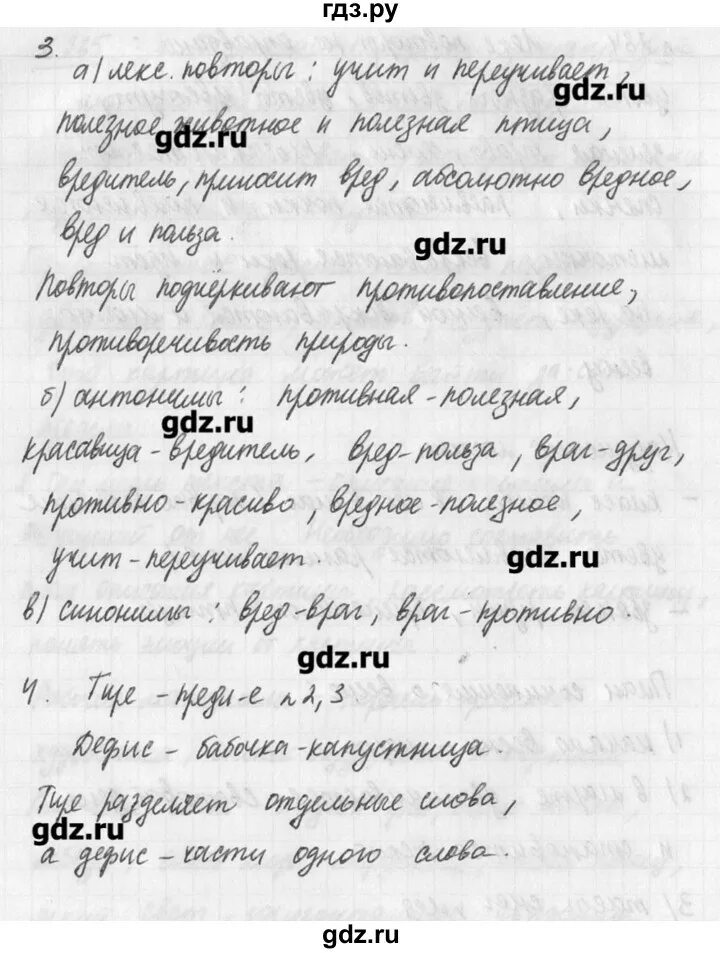 гдз.ру
3.
а) лекс. повторы: учит и переучивает,
gdz.ru
полезное животное и полезная птица,
gdz.ru
вредитель, приносит вред, абсолютно вредное,
вред и польза.
gdz.ru
Повторы подчёркивают противопоставление,
противоречивость природы.
gdz.ru
б) антонимы: противная - полезная,
gdz.ru
красавица - вредитель, вред - польза, враг - друг,
противно - красиво, вредное - полезное,
учит - переучивает.
gdz.ru
в) синонимы: вред - враг, враг - противно.
gdz.ru
4. Тире - предл-е n 2, 3.
Дефис - бабочка-капустница.
gdz.ru
Тире разделяет отдельные слова,
gdz.ru
а дефис - части одного слова.
gdz.ru
гдз.ру